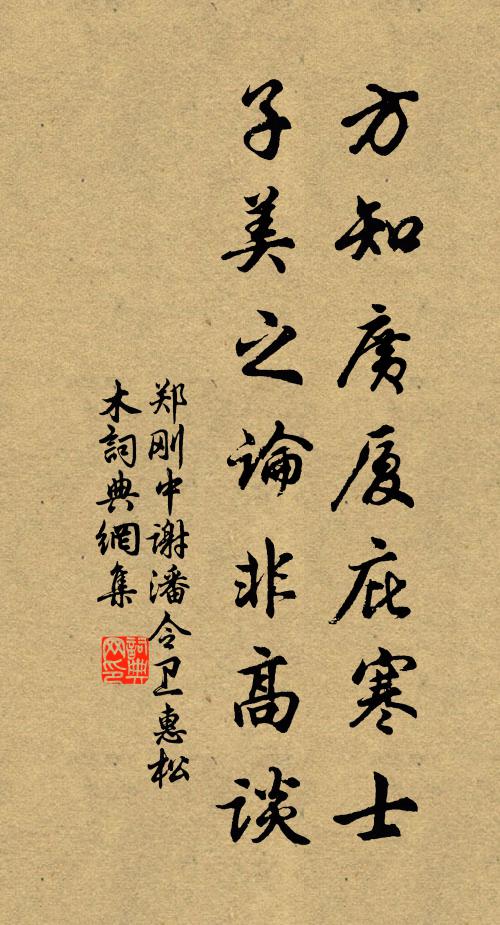 方知廣厦庇寒士
子美之論非高談
郑刚中谢潘令卫惠松
木詞典網集
詞典网印